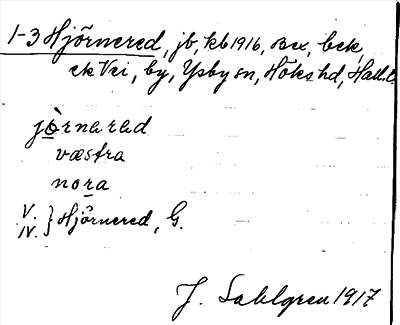 1-3 Hjörnered, jb, kb 1916, Bex, bek,
ek Vxi, by, Ysby sn, Höks hd, Hall. l.
jòrnarad
væstra
nora
V. } Hjörnered, G.
IV.
J. Sahlgren 1917